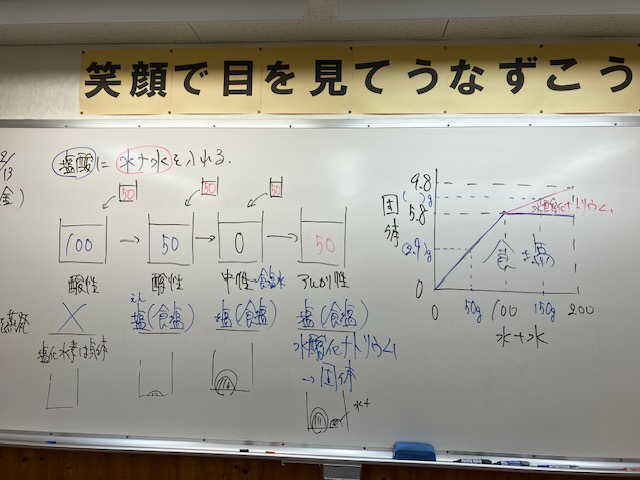 笑顔で目を見てうなずこう
2/13
金)
塩酸に 水+水を入れる.
50 50 50
100 → 50 → 0 → 50
酸性 酸性 中性 食塩水 アルカリ性
蒸発
X 塩(食塩) 塩(食塩) 塩(食塩)
塩化水素は気体 水酸化ナトリウム
→ 固体
水+
固体
9.8
( )g
5.8
(2.9)g
0
水酸化ナトリウム
食塩
0 50g 100 150g 200
水+水